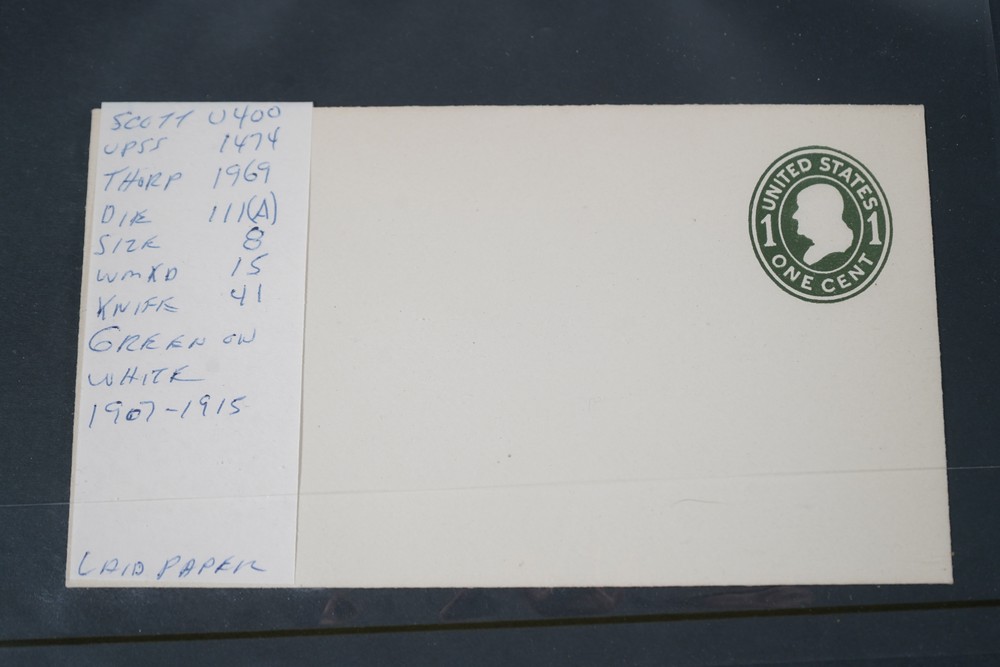 SCOTT U400
UPSS 1474
THORP 1969
DIE 111(A)
SIZE 8
WMKD 15
KNIFE 41
GREEN ON
WHITE
1907-1915
LAID PAPER
UNITED STATES
1 1
ONE CENT